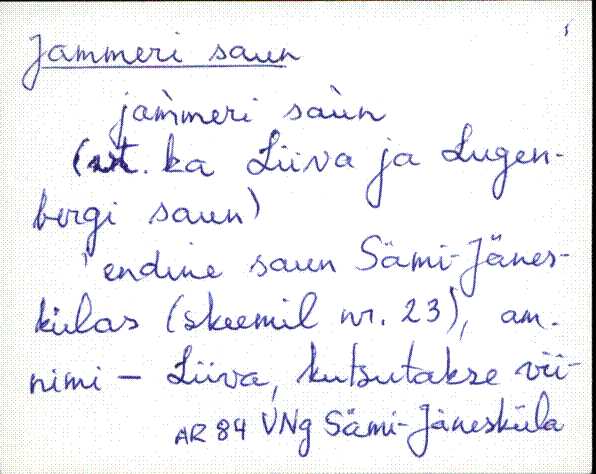 Jammeri saun
jam̀meri saùn
(vt. ka Liiva ja Lugen-
bergi saun)
' endine saun Sämi-Jänes-
külas (skeemil nr. 23), am.
nimi – Liiva, kutsutakse vii-
AR 84 VNg Sämi-Jänesküla